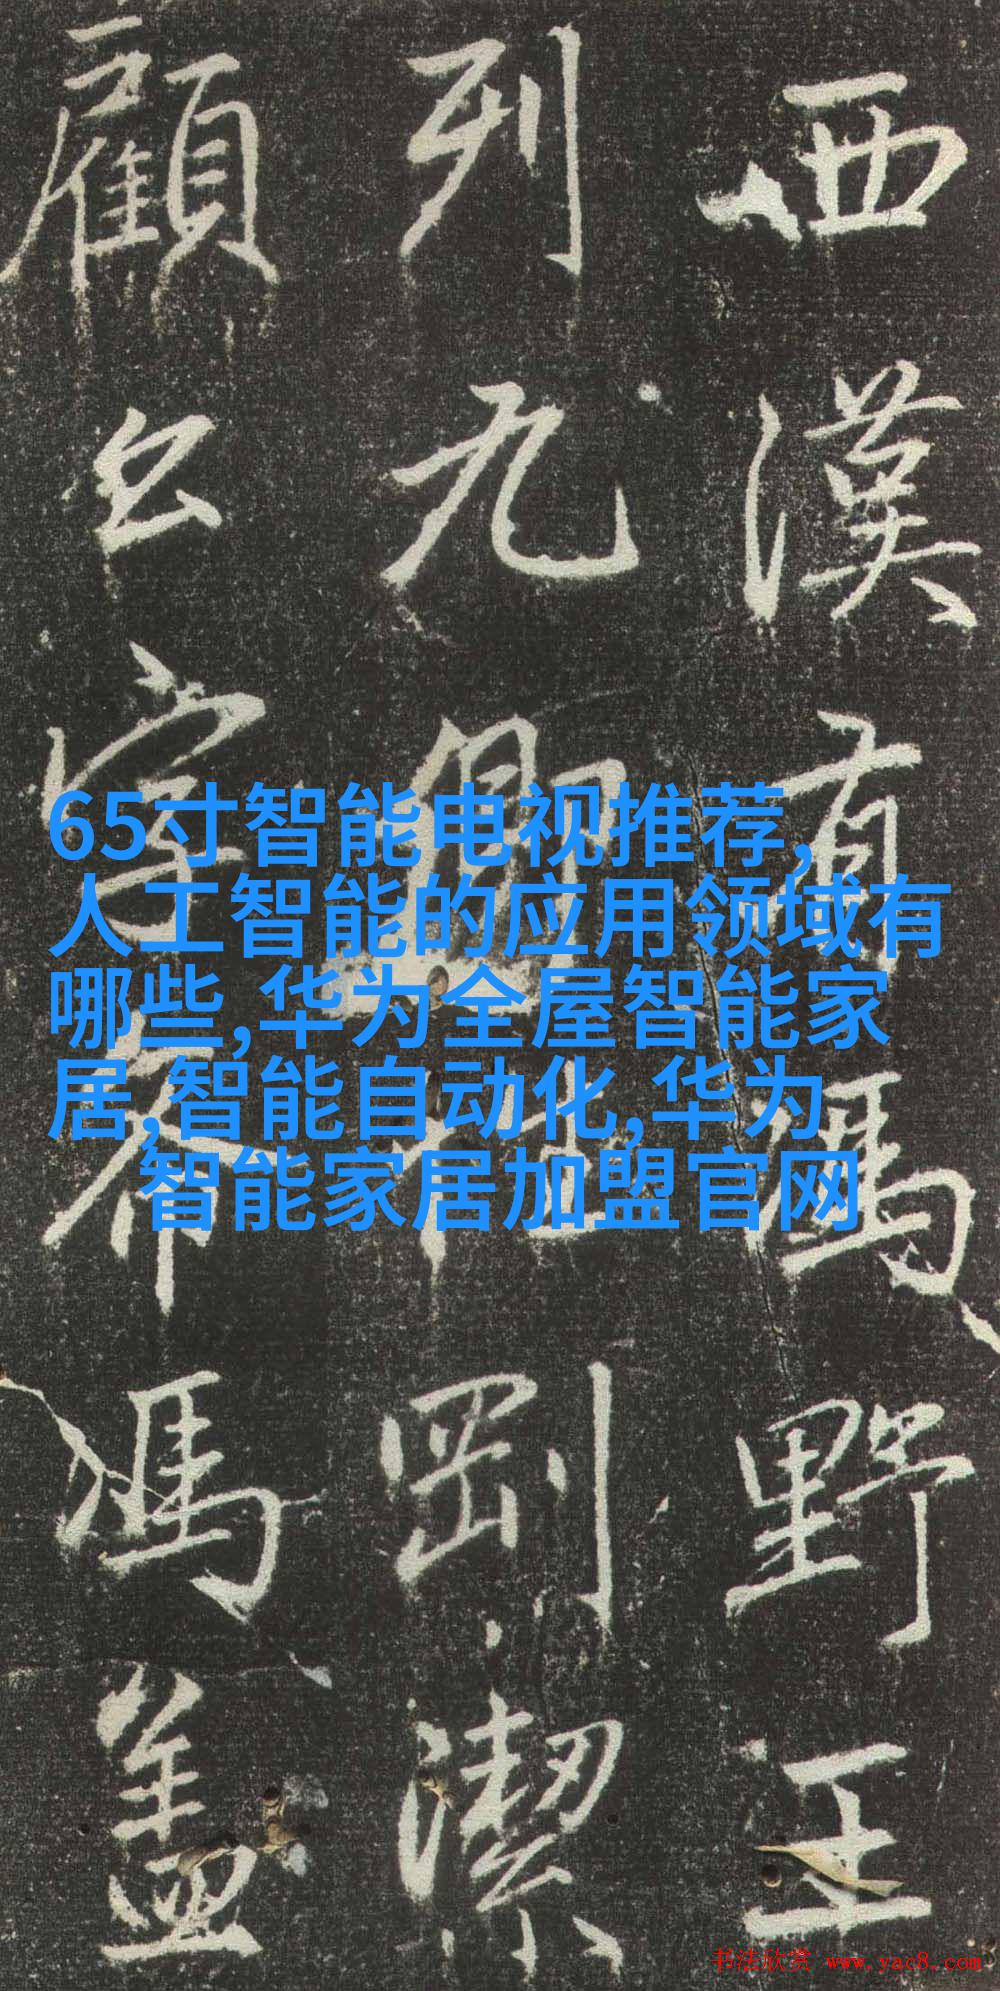 西漢有馮野王
列九卿性剛潔
顧公字希馮盖
65寸智能电视推荐,
人工智能的应用领域有
哪些,华为全屋智能家
居,智能自动化,华为
智能家居加盟官网
书法欣赏 www.yac8.com